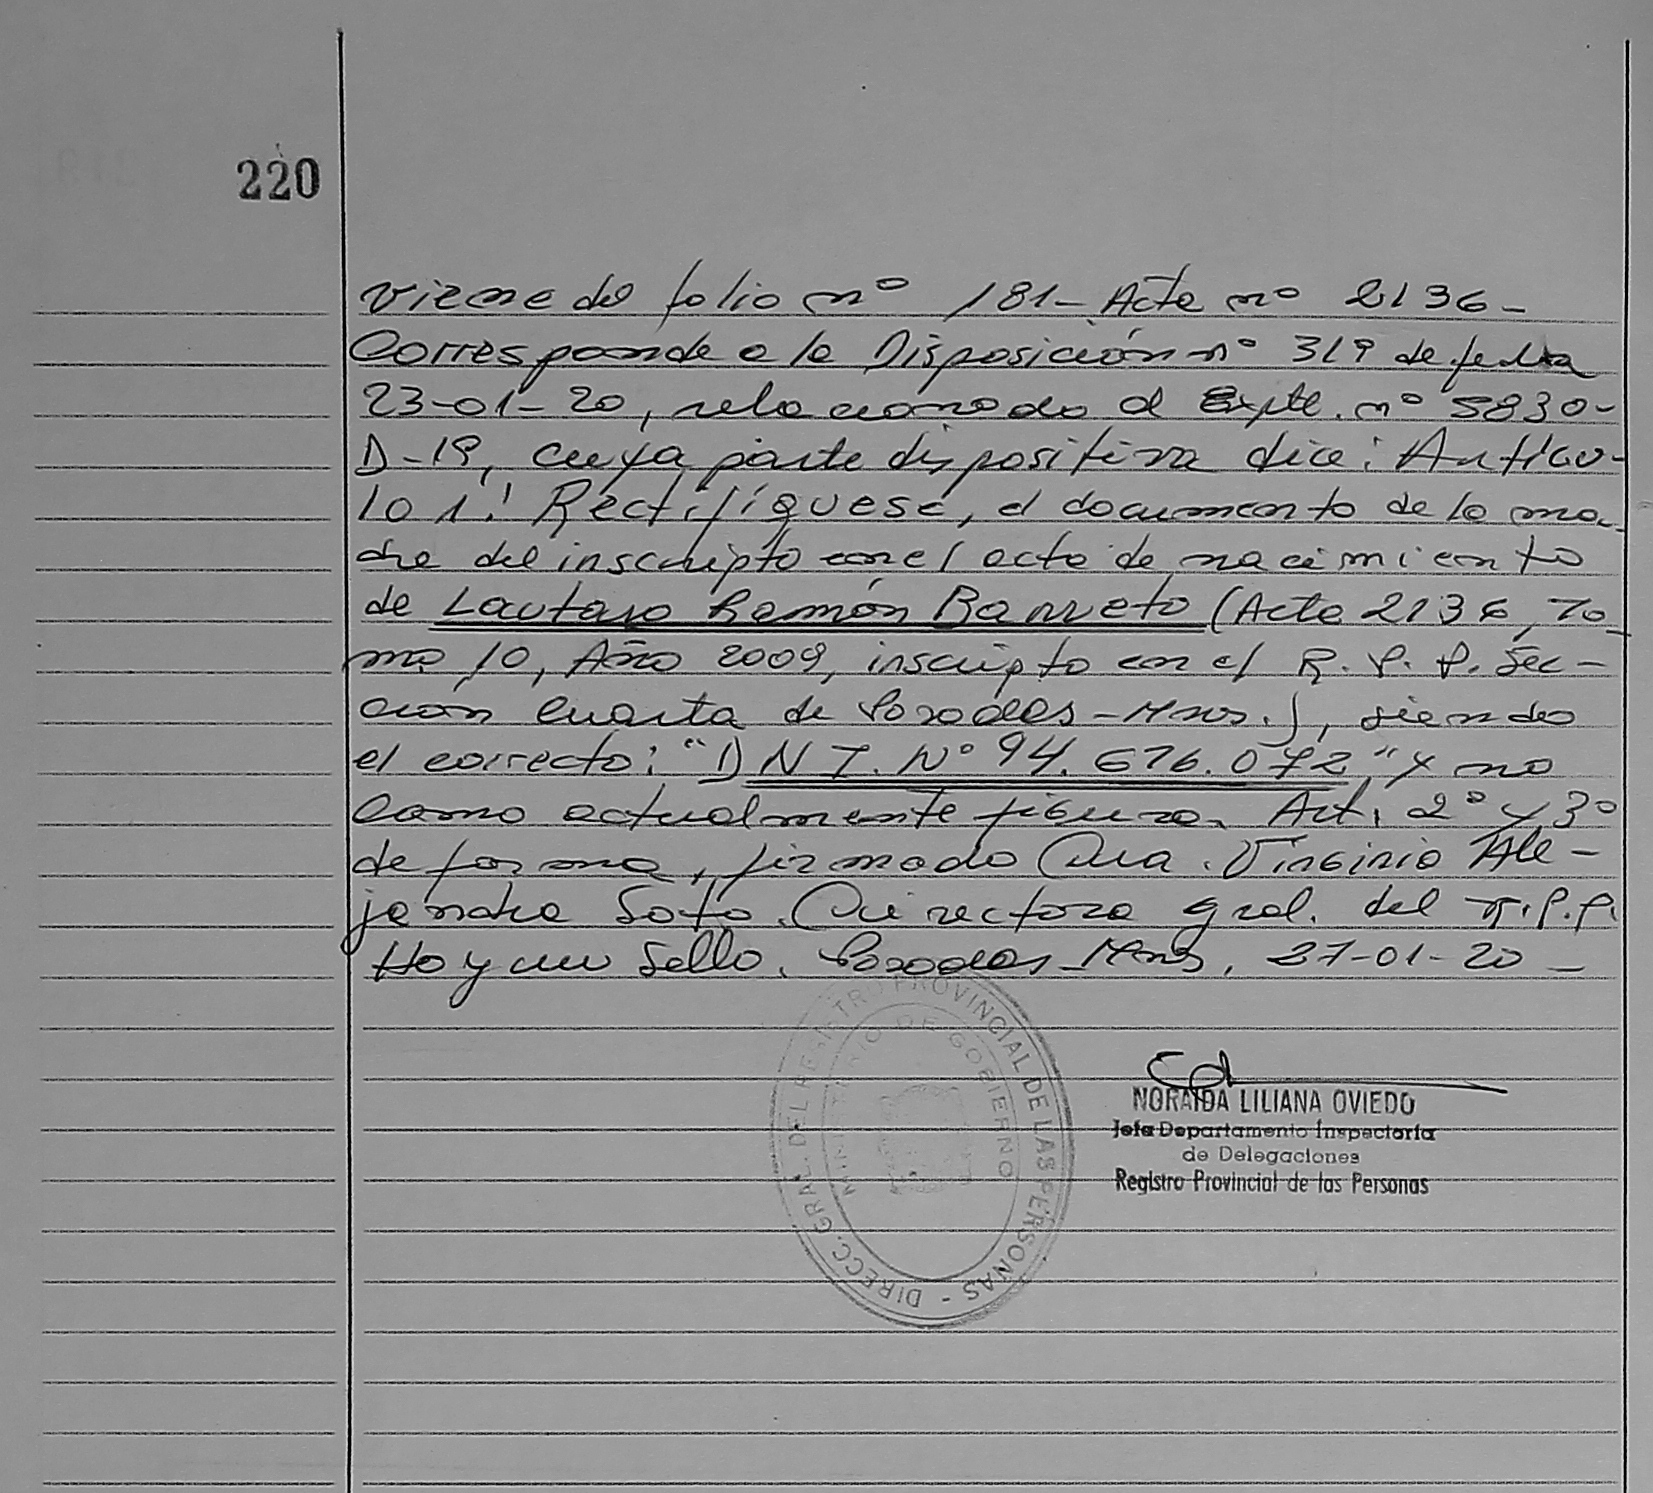 220
viene del folio nº 181- Acta nº 2136-
Corresponde a la Disposición nº 319 de fecha
23-01-20, relacionado al Expte. nº 5830-
D-19, cuya parte dispositiva dice: Artícu-
lo 1: Rectifíquese, el documento de la ma-
dre del inscripto en el acta de nacimiento
de Lautaro Ramón Barreto (Acta 2136, To-
mo 10, Año 2009, inscripto en el R.P.P. Sec-
ción Cuarta de Posadas-Mnes.), siendo
el correcto: "DNI. Nº 94.676.072" y no
como actualmente figura. Art. 2º y 3º
de forma, firmado Dra. Virginia Ale-
jandra Soto. Directora Gral. del R.P.P.
Hay un Sello. Posadas-Mnes, 27-01-20-
DIRECC. GRAL. DEL REGISTRO PROVINCIAL DE LAS PERSONAS -
MINISTERIO DE GOBIERNO
NORAIDA LILIANA OVIEDO
Jefa Departamento Inspectoría
de Delegaciones
Registro Provincial de las Personas